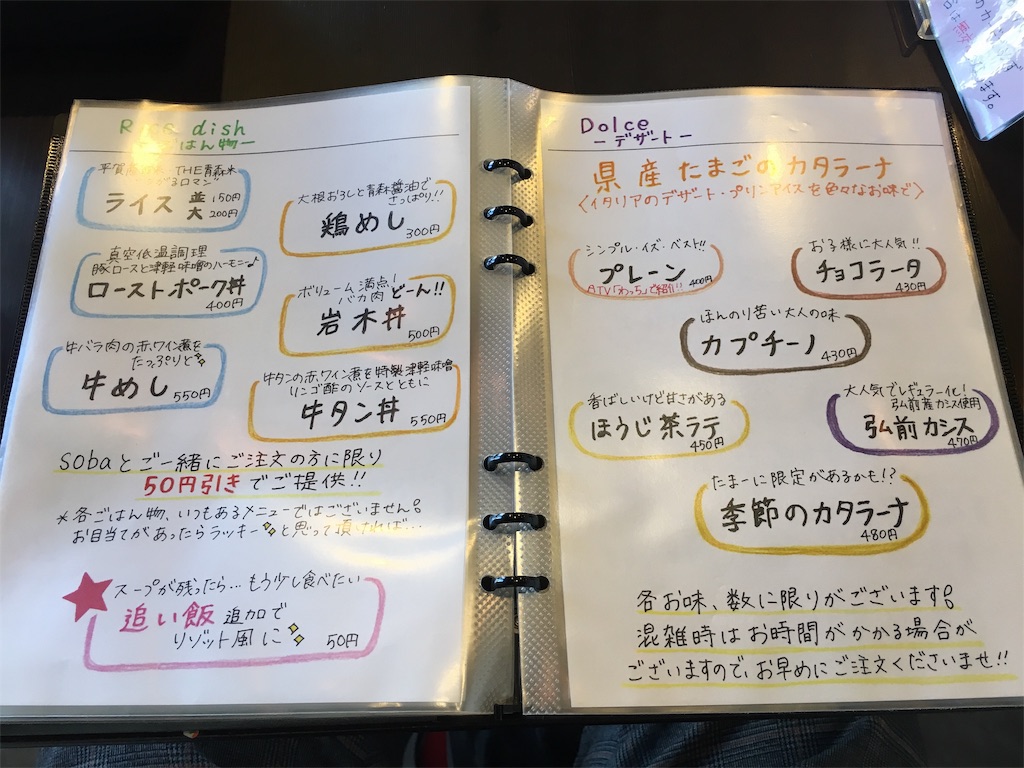 Rice dish
ーごはん物ー
THE青森米
ロマン"
ライス 並 150円
大 200円
大根おろしと青森醤油で
さっぱり!!
鶏めし
300円
真空低温調理
豚ロースと津軽味噌のハーモニー♪
ローストポーク丼
400円
ボリューム満点!
バカ肉 どーん!!
岩木丼
500円
牛バラ肉の赤ワイン煮を
たっぷりと
牛めし 550円
牛タンの赤ワイン煮を特製津軽味噌
リンゴ酢のソースとともに
牛タン丼 550円
sobaとご一緒にご注文の方に限り
50円引きでご提供!!
*各ごはん物、いつもあるメニューではございません。
お目当てがあったらラッキーと思って頂ければ…
スープが残ったら…もう少し食べたい
追い飯 追加で
リゾット風に 50円
Dolce
ーデザートー
県産たまごのカタラーナ
〈イタリアのデザート・プリンアイスを色々なお味で〉
シンプル・イズ・ベスト!!
プレーン 400円
ATV「わっち」で紹介!!
お子様に大人気!!
チョコラータ
430円
ほんのり苦い大人の味
カプチーノ 430円
香ばしいけど甘さがある
ほうじ茶ラテ
450円
大人気でレギュラー化!
弘前産カシス使用
弘前カシス
470円
たまーに限定があるかも!?
季節のカタラーナ
480円
各お味、数に限りがございます。
混雑時はお時間がかかる場合が
ございますので、お早めにご注文くださいませ!!